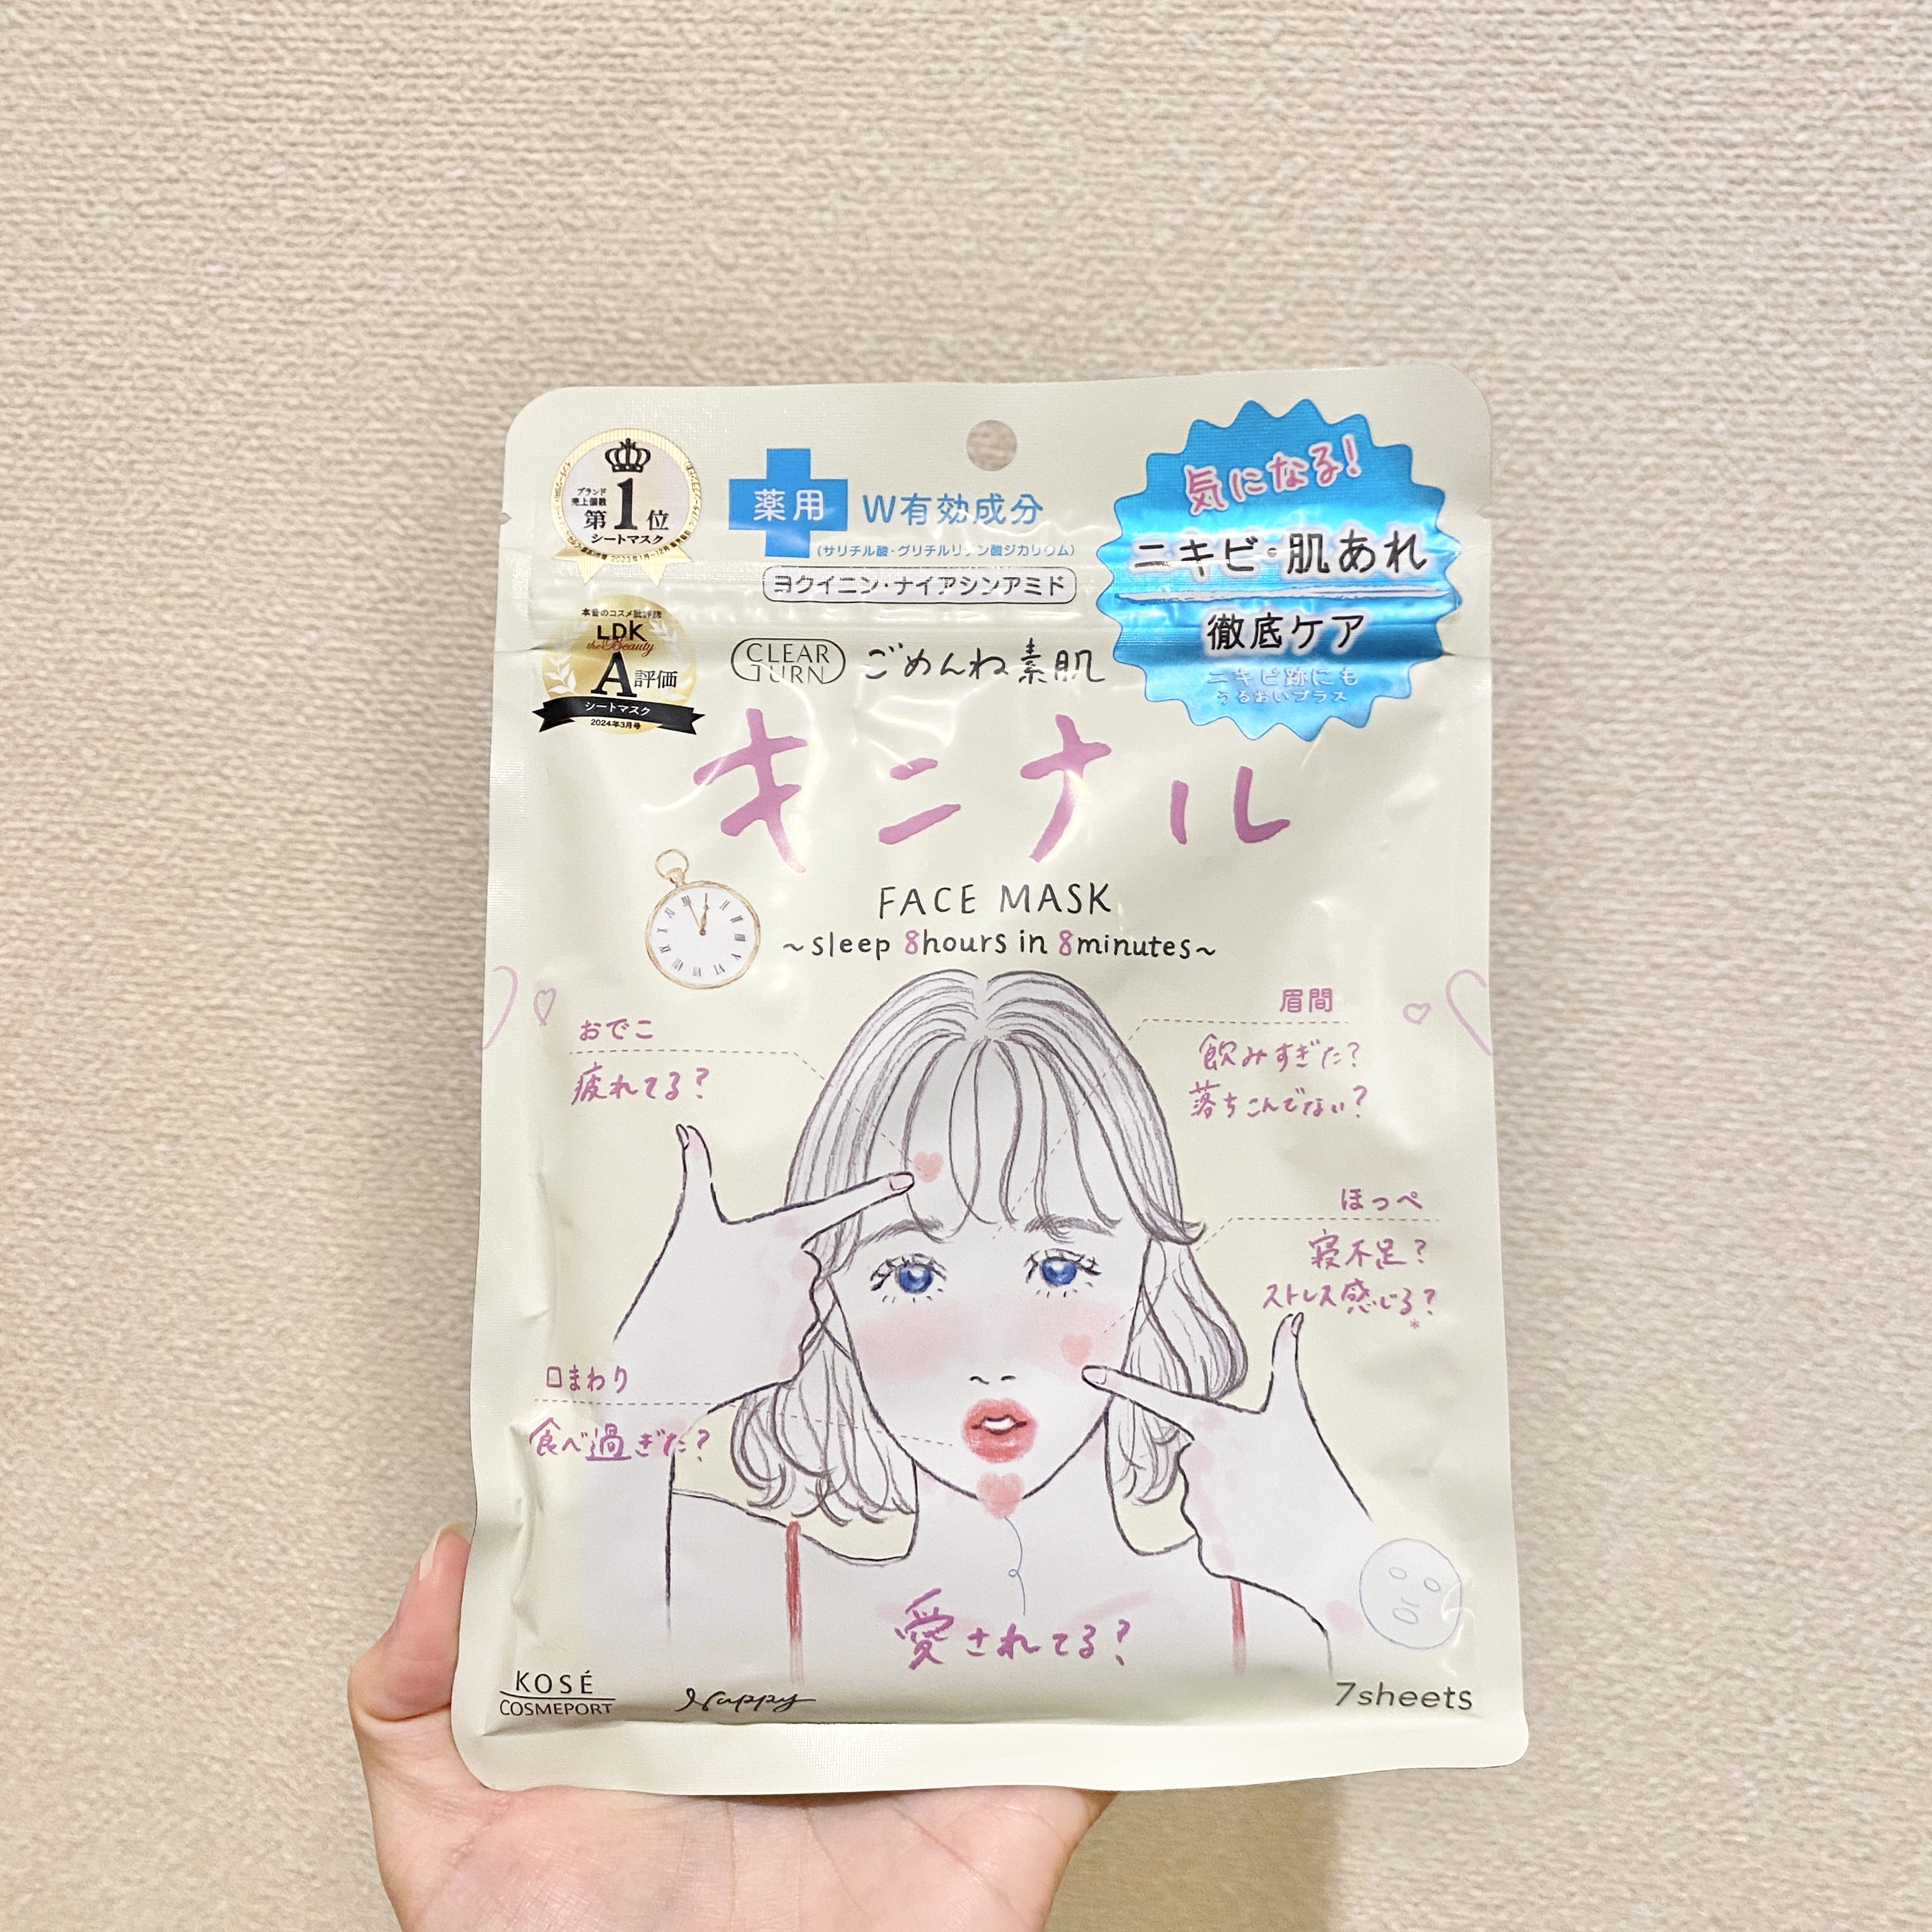 ブランド
売上個数
第1位
シートマスク
本音のコスメ批評誌
LDK
the Beauty
A評価
シートマスク
2024年3月号
薬用 W有効成分
(サリチル酸・グリチルリチン酸ジカリウム)
ヨクイニン・ナイアシンアミド
気になる!
ニキビ・肌あれ
徹底ケア
ニキビ跡にも
うるおいプラス
CLEAR
TURN
ごめんね素肌
キニナル
FACE MASK
~sleep 8hours in 8minutes~
おでこ
疲れてる?
眉間
飲みすぎた?
落ちこんでない?
ほっぺ
寝不足?
ストレス感じる?
*
口まわり
食べ過ぎた?
愛されてる?
KOSÉ
COSMEPORT
Nappy
7sheets